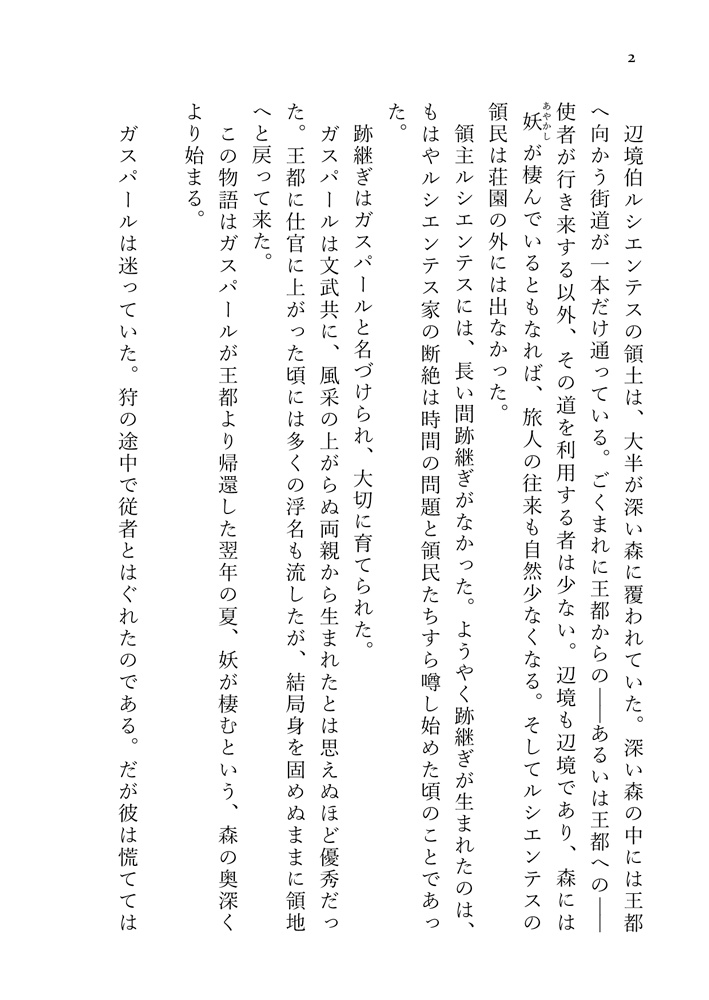 2
辺境伯ルシエンテスの領土は、大半が深い森に覆われていた。深い森の中には王都
へ向かう街道が一本だけ通っている。ごくまれに王都からの――あるいは王都への――
使者が行き来する以外、その道を利用する者は少ない。辺境も辺境であり、森には
妖が棲んでいるともなれば、旅人の往来も自然少なくなる。そしてルシエンテスの
あやかし
領民は荘園の外には出なかった。
領主ルシエンテスには、長い間跡継ぎがなかった。ようやく跡継ぎが生まれたのは、
もはやルシエンテス家の断絶は時間の問題と領民たちすら噂し始めた頃のことであっ
た。
跡継ぎはガスパールと名づけられ、大切に育てられた。
ガスパールは文武共に、風采の上がらぬ両親から生まれたとは思えぬほど優秀だっ
た。王都に仕官に上がった頃には多くの浮名も流したが、結局身を固めぬままに領地
へと戻って来た。
この物語はガスパールが王都より帰還した翌年の夏、妖が棲むという、森の奥深く
より始まる。
ガスパールは迷っていた。狩の途中で従者とはぐれたのである。だが彼は慌てては